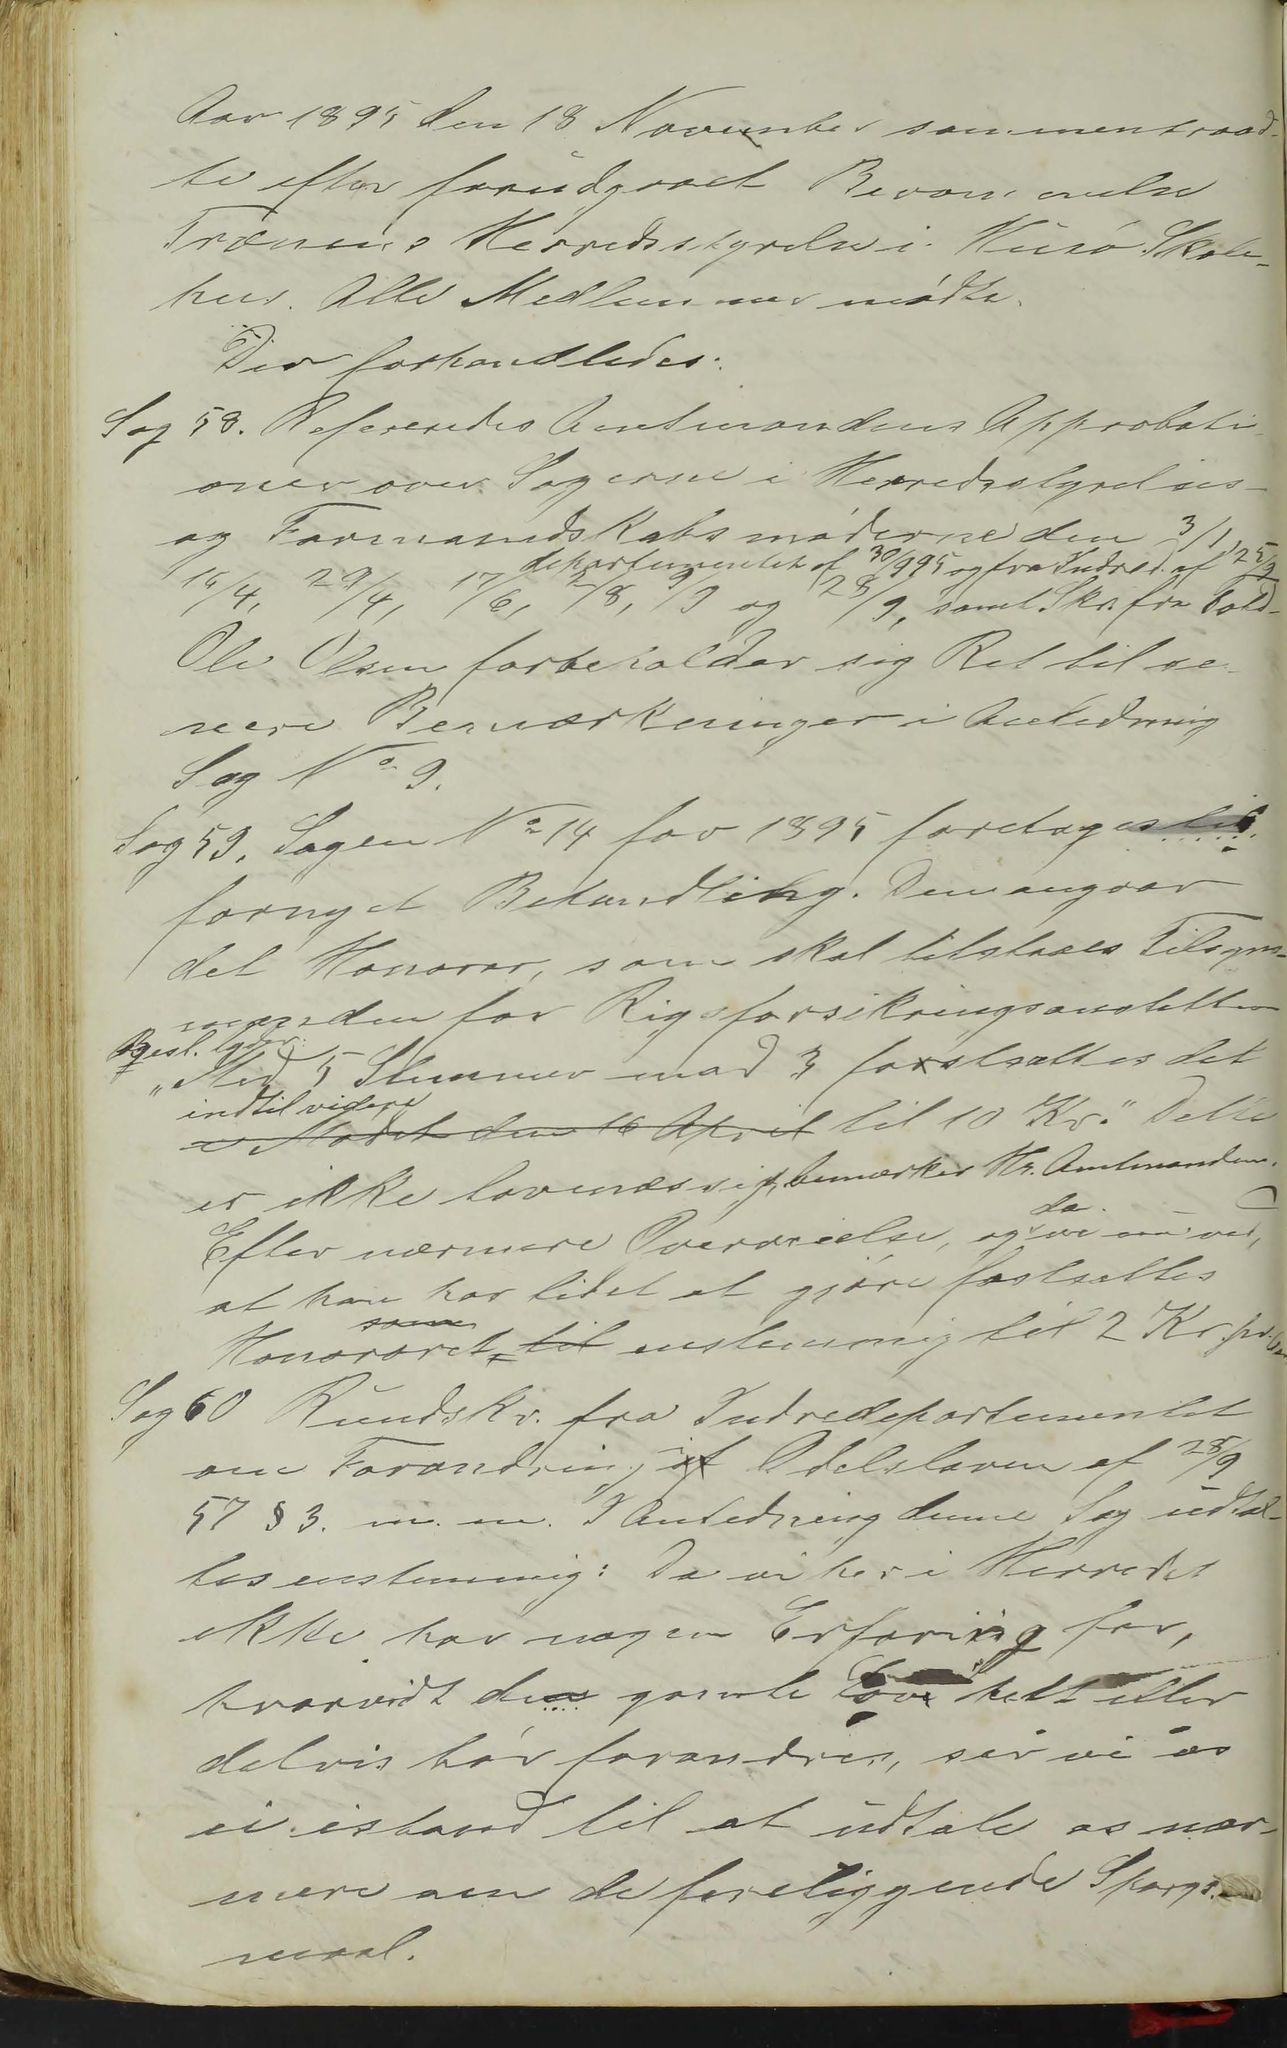 Aar 1895 den 18 November sammentraad-
te efter forudgaaet Berammelse
Trænens Herredsstyrelse i Husø Skole-
hus. Alle Medlemmer mødte.
Der forhandledes:
Sag 58. Refereredes Amtmandens Approbati-
oner over Sagerne i Herredsstyrelses-
og Formandskabsmøderne den 3/1,
departementet af 30/9 95 og fra Indred. af 25/9
16/4, 29/4, 17/6, 3/8, 9/9 og 28/9, samt Skr. fra Told-
Ole Olsen forbeholder sig Ret til se-
nere Bemærkninger i Anledning
Sag No 9.
Sag 59. Sagen No 14 for 1895 foretages til
fornyet Behandling. Den angaar
det Honorar, som skal tilstaaes Tilsyns-
manden for Rigsforsikringsanstalten
Besl. lyder:
"Med 5 Stemmer mod 3 fastsættes det
indtil videre
i Mødet den 16 April til 10 Kr." Dette
er ikke lovmæssigt, bemærker Hr. Amtmanden.
da
Efter nærmere Overveielse, og vi nu ved,
at han har lidet at gjøre fastsættes
som
Honoraret til enstemmig til 2 Kr. pr.
Sag 60 Rundskr. fra Indredepartementet
om Forandring i af Odelsloven af 28/9
57 § 3. m. m. I Anledning denne Sag udtal-
tes enstemmig: Da vi her i Herredet
ikke har nogen Erfaring for,
hvorvidt den gamle Lov helt eller
delvis bør forandres, ser vi os
ei istand til at udtale os nær-
mere om de foreliggende Spørgs-
maal.